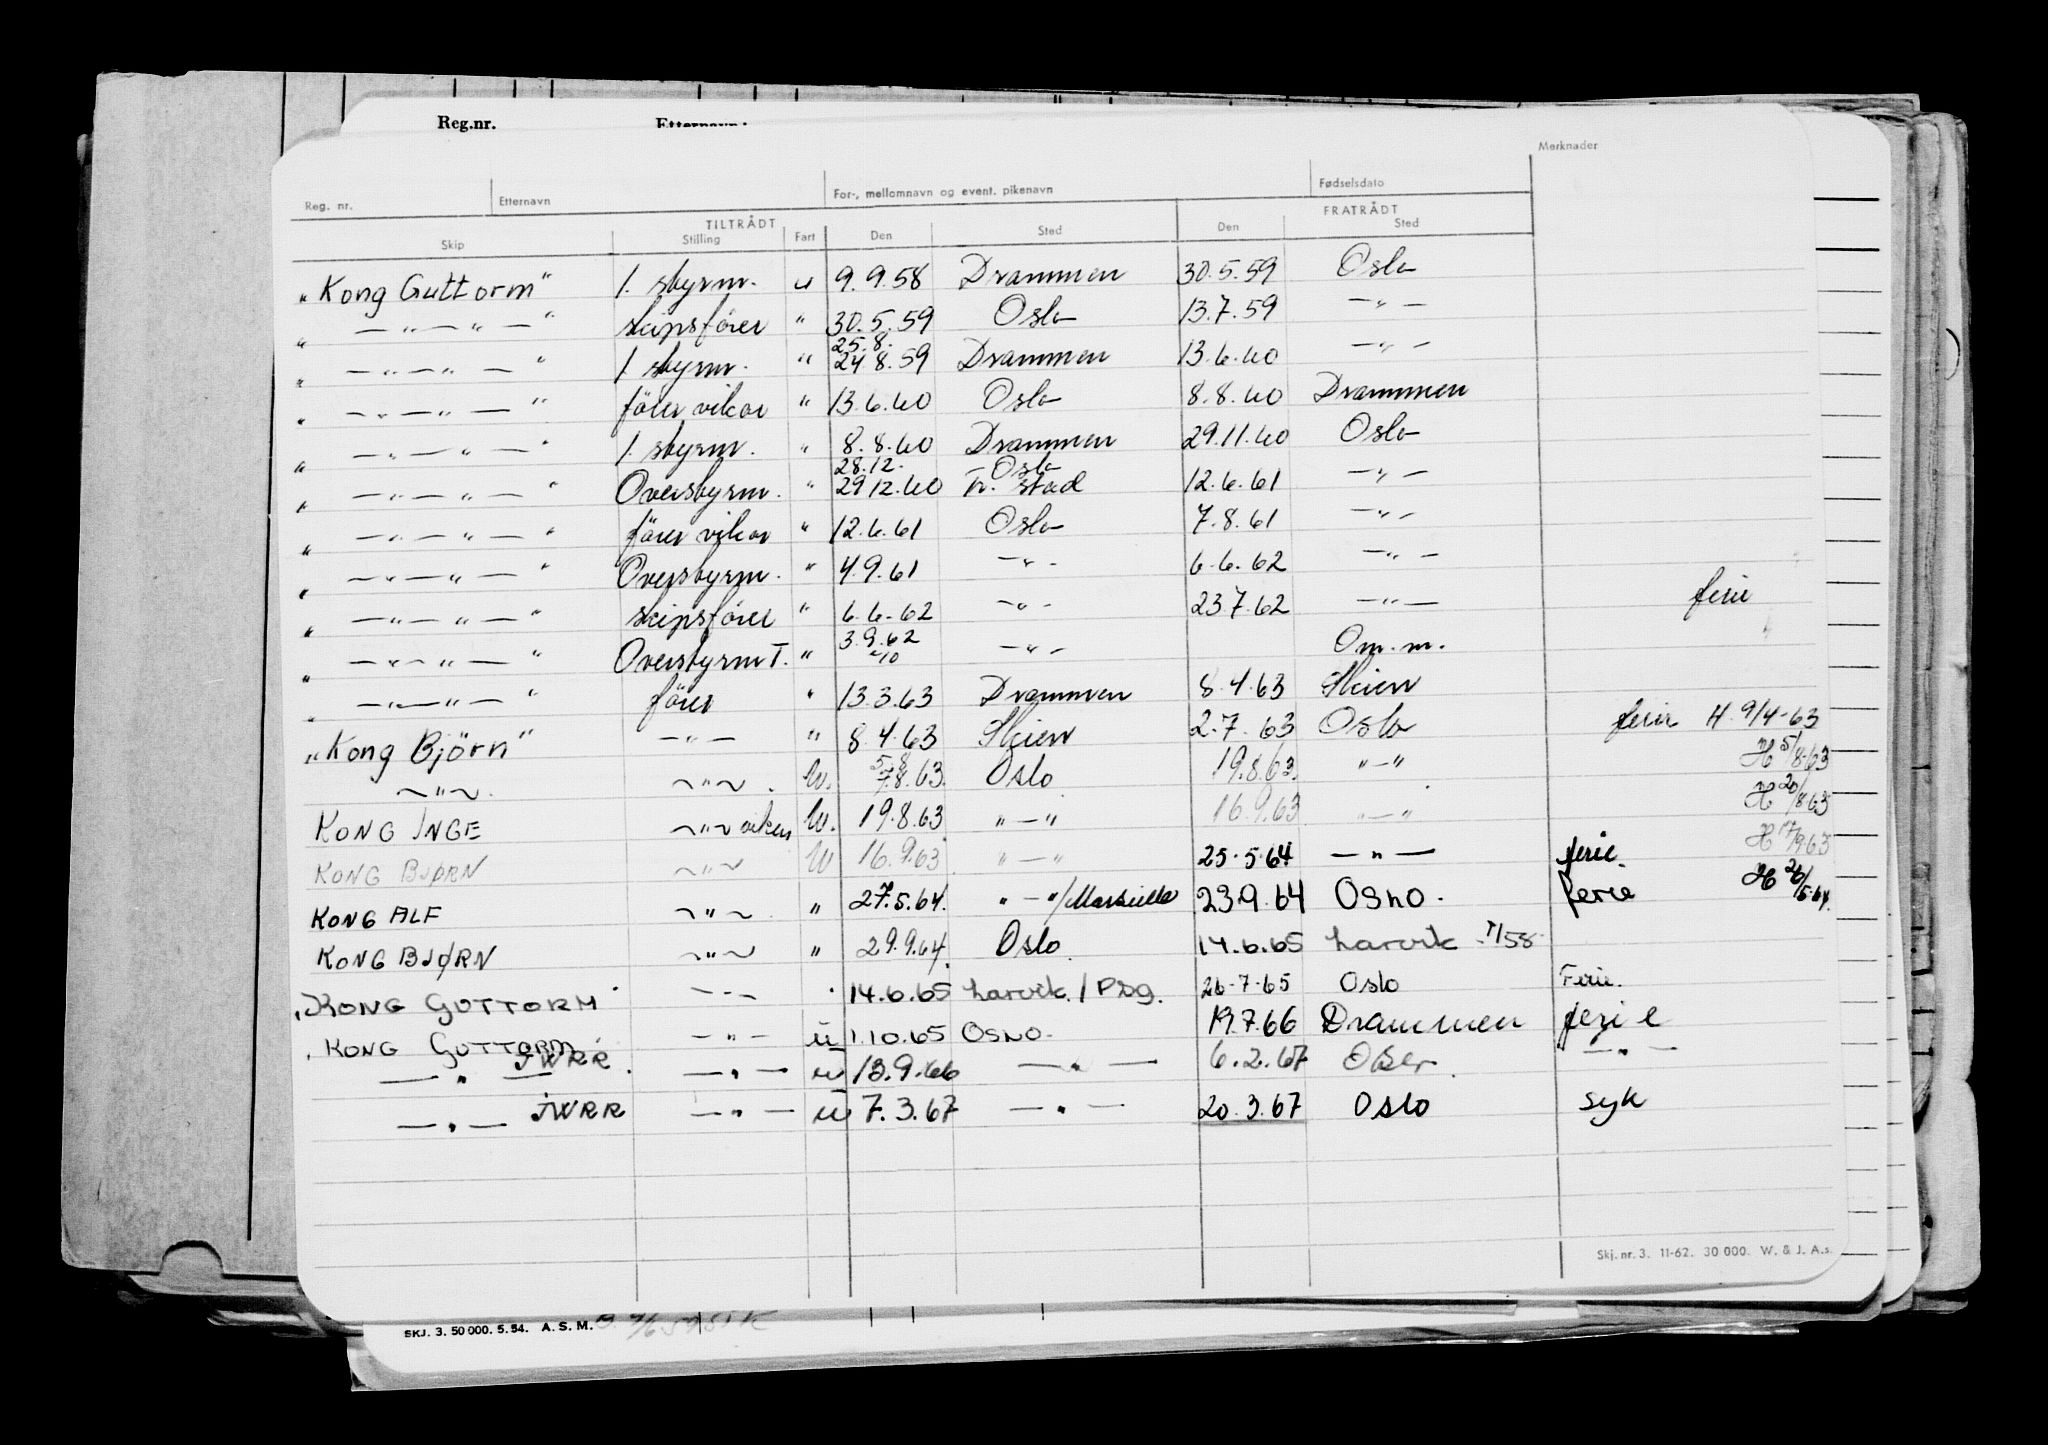 Reg.nr. Etternavn:
Merknader
Reg. nr. Etternavn For-, mellomnavn og event. pikenavn Fødselsdato
TILTRÅDT FRATRÅDT
Skip Stilling Fart Den Sted Den Sted
"Kong Guttorm" 1. styrm. u 9.9.58 Drammen 30.5.59 Oslo
" — " — " — " skipsförer " 30.5.59 Oslo 13.7.59 — " —
25.8.
" — " — " — " 1 styrm. " 24.8.59 Drammen 13.6.60 — " —
" — " — " — " förer vikar " 13.6.60 Oslo 8.8.60 Drammen
" — " — " — " 1. styrm. " 8.8.60 Drammen 29.11.60 Oslo
28.12. Oslo
" — " — " — " Overstyrm. " 29.12.60 Fr. stad 12.6.61 — " —
" — " — " — " förer vikar " 12.6.61 Oslo 7.8.61 — " —
" — " — " — " Overstyrm. " 4.9.61 — " — 6.6.62 — " —
" — " — " — " skipsförer " 6.6.62 — " — 23.7.62 — " — ferie
" — " — " — " Overstyrm I. " 3.9.62 — " — Om. m.
" — " — " — " förer " 13.3.63 Drammen 8.4.63 Skien
"Kong Björn" — " — " 8.4.63 Skien 2.7.63 Oslo ferie H. 9/4-63
5.8
— " — — " — W. 7.8.63. Oslo 19.8.63. " — " H 5/8-63
KONG INGE — " — vikar W. 19.8.63 " — " 16.9.63 " — " H 20/8-63
KONG BJØRN — " — W 16.9.63 " — " 25.5.64 — " — ferie. H 17/9.63
KONG ALF — " — " 27.5.64. " — "/Marseille 23.9.64 OSLO. ferie H 26/5-64.
KONG BJØRN — " — " 29.9.64. Oslo 14.6.65 Larvik
"KONG GUTTORM" — " — " 14.6.65 Larvik / Pbg. 26.7.65 Oslo Ferie.
"KONG GUTTORM — " — u 1.10.65 OSLO. 19.7.66 Drammen ferie
— " — JWRR. — " — u 13.9.66 — " — 6.2.67 — " —
— " — JWRR — " — u 7.3.67 — " — 20.3.67 Oslo syk
Skj. nr. 3. 11-62. 30 000. W. & J. A.s.
SKJ. 3. 50 000. 5. 54. A. S. M.